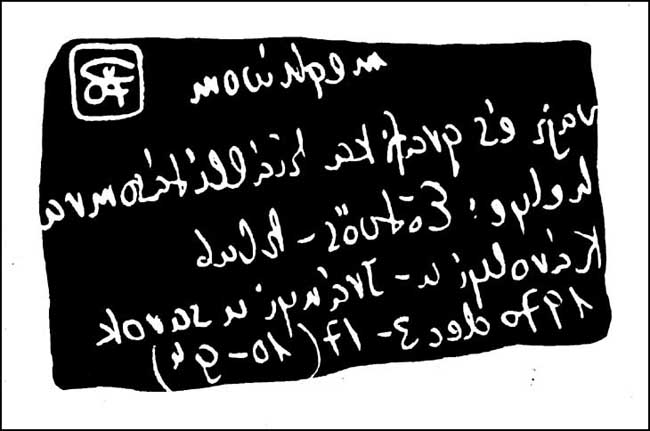 meghívom
rajz és grafika kiállításomra
helye: Eötvös-klub
Károlyi u-Irányi u sarok
1970 dec 3-17 (10-9h)